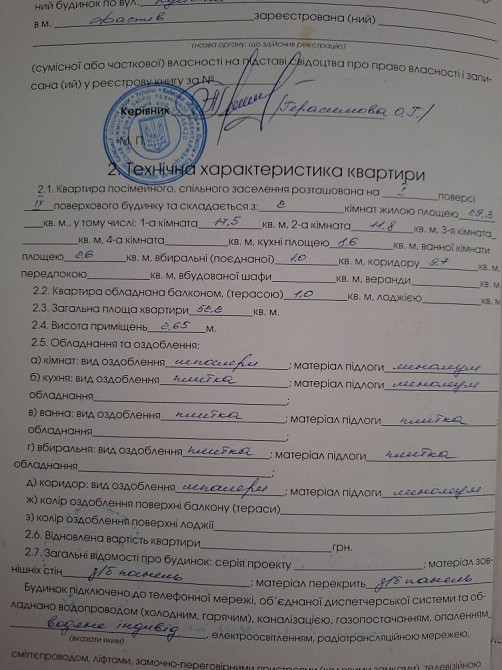 ний будинок по вул.
в м. Фастів зареєстрована (ний)
(назва органу, що здійснив реєстрацію)
(сумісної або часткової) власності на підставі свідоцтва про право власності і запи-
сана (ий) у реєстрову книгу за №
Керівник (Герасимова О.Г.)
М. П.
2. Технічна характеристика квартири
2.1. Квартира посімейного, спільного заселення розташована на I поверсі
IX поверхового будинку та складається з: 2 кімнат жилою площею 29,3
кв. м., у тому числі: 1-а кімната 17,5 кв. м, 2-а кімната 11,8 кв. м, 3-я кімната
кв. м, 4-а кімната кв. м, кухні площею кв. м, ванної кімнати
площею 2,6 кв. м, вбиральні (поєднаної) 1,0 кв. м, коридору кв. м,
передпокою кв. м, вбудованої шафи кв. м, веранди кв. м.
2.2. Квартира обладнана балконом, (терасою) 1,0 кв. м, лоджією кв. м.
2.3. Загальна площа квартири кв. м.
2.4. Висота приміщень 2,65 м.
2.5. Обладнання та оздоблення:
а) кімнат: вид оздоблення шпалери ; матеріал підлоги линолеум
б) кухня: вид оздоблення плитка ; матеріал підлоги линолеум
обладнання ;
в) ванна: вид оздоблення плитка ; матеріал підлоги плитка ;
обладнання ;
г) вбиральня: вид оздоблення плитка ; матеріал підлоги плитка ;
обладнання ;
д) коридор: вид оздоблення шпалери ; матеріал підлоги линолеум
ж) колір оздоблення поверхні балкону (тераси)
з) колір оздоблення поверхні лоджії
2.6. Відновлена вартість квартири грн.
2.7. Загальні відомості про будинок: серія проекту ; матеріал зов-
нішніх стін з/б панель ; матеріал перекрить з/б панель
Будинок підключено до телефонної мережі, об'єднаної диспетчерської системи та об-
ладнано водопроводом (холодним, гарячим), каналізацією, газопостачанням, опаленням
водяне індивід , електроосвітленням, радіотрансляційною мережею,
(вказати яким)
сміттєпроводом, ліфтами, замочно-переговорними пристроями (кодовими замками), телевізійною